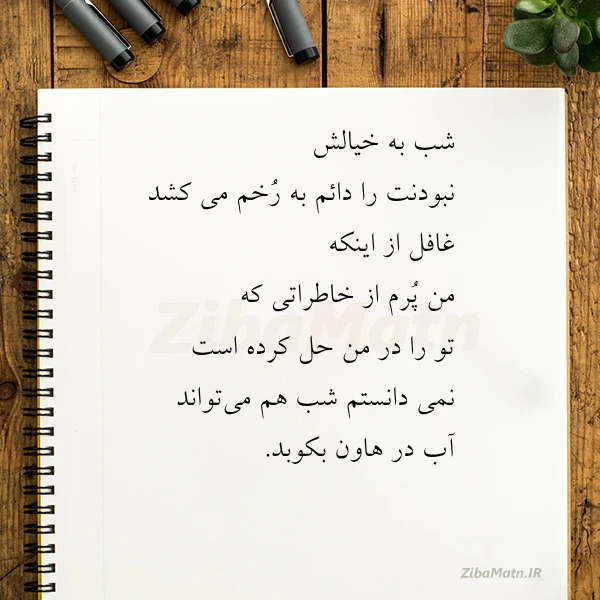 شب به خیالش
نبودنت را دائم به رُخم می کشد
غافل از اینکه
من پُرم از خاطراتی که
تو را در من حل کرده است
نمی دانستم شب هم می‌تواند
آب در هاون بکوبد.
ZibaMatn
ZibaMatn.IR